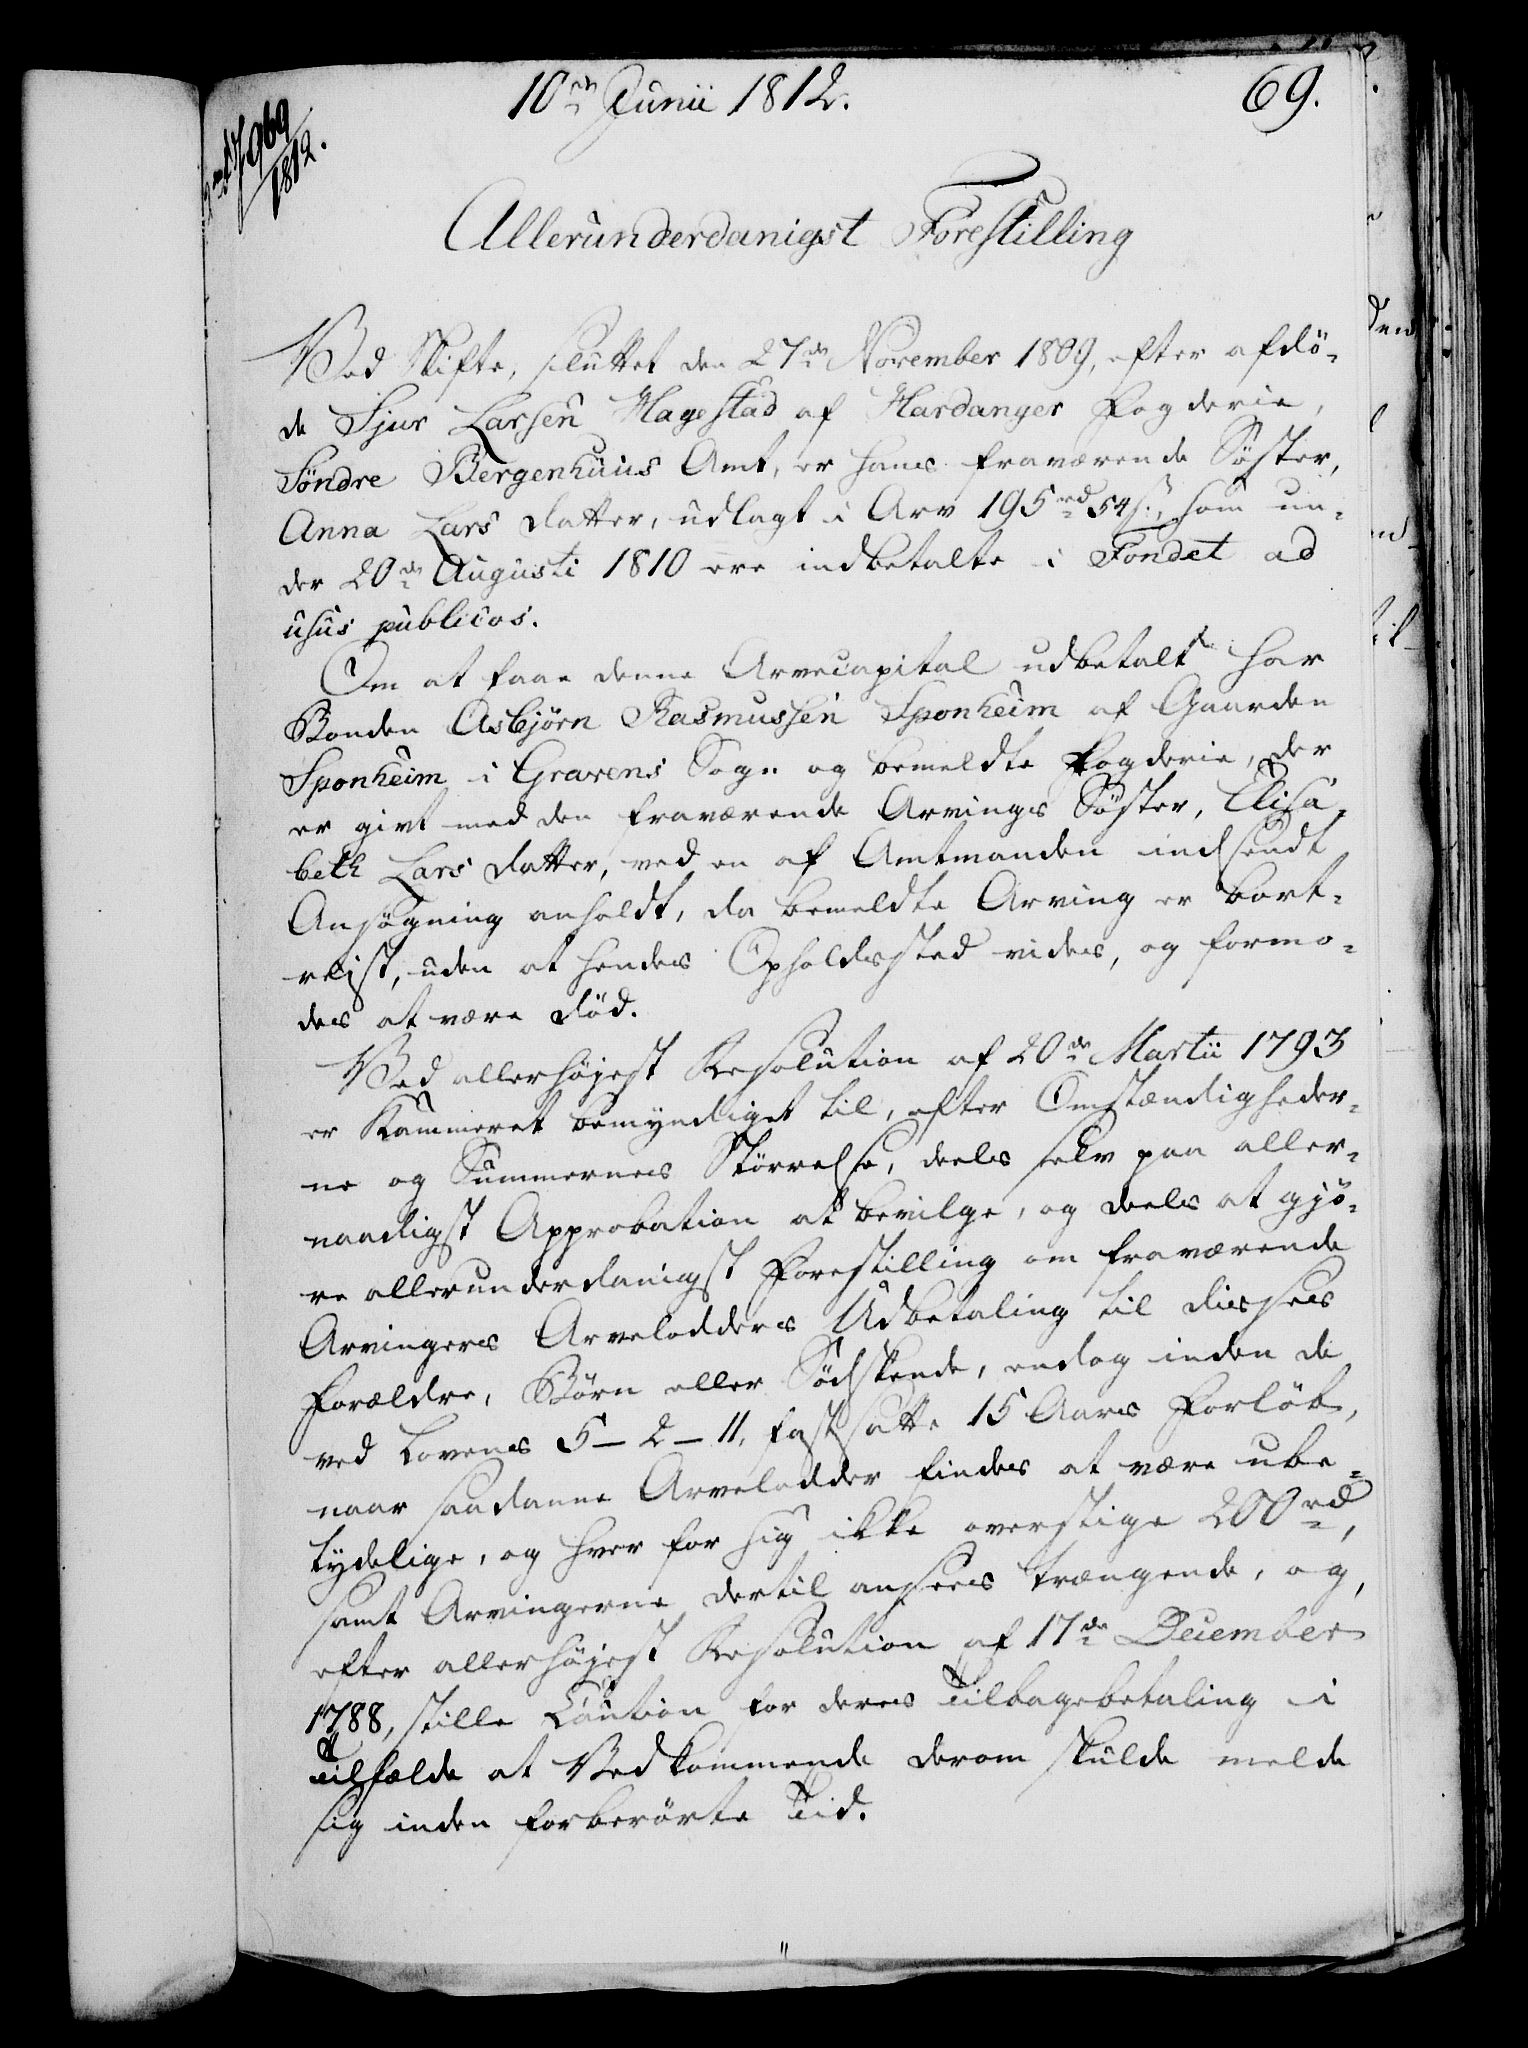 10de Junii 1812.
69.
1812.
Allerunderdanigst Forestilling
Ved Skifte, sluttet den 27de November 1809, efter afdö-
de Sjur Larsen Hagestad af Hardanger Fogderie,
Söndre Bergenhuus Amt, er hans fraværende Söster,
Anna Lars Datter, udlagt i Arv 195 rd 54 s., som un-
der 20de Augusti 1810 ere indbetalte i Fondet ad
usus publicos.
Om at faae denne Arvecapital udbetalt har
Bonden Asbjörn Rasmussen Sponheim af Gaarden
Sponheim i Gravens Sogn og bemeldte Fogderie, der
er givt med den fraværende Arvings Söster, Elisa-
beth Lars Datter, ved en af Amtmanden indsendt
Ansögning anholdt, da bemeldte Arving er bort-
reist, uden at hendes Opholdssted vides, og formo-
des at være död.
Ved allerhöjest Resolution af 20de Martii 1793
er Kammeret bemyndiget til, efter Omstændigheder-
ne og Summernes Störrelse, deels selv paa aller-
naadigst Approbation at bevilge, og deels at gjö-
re allerunderdanigst Forestilling om fraværende
Arvingers Arvelodders Udbetaling til disses
Forældre, Börn eller Södskende, endog inden de
ved Lovens 5-2-11, fastsatte 15 Aars Forlöb,
naar saadanne Arvelodder findes at være ube-
tydelige, og hver for sig ikke overstige 200 rd,
samt Arvingerne dertil ansees trængende, og,
efter allerhöjest Resolution af 17de December
1788, stille Caution for deres Tilbagebetaling i
Tilfælde at Vedkommende derom skulde melde
sig inden forberörte Tid.